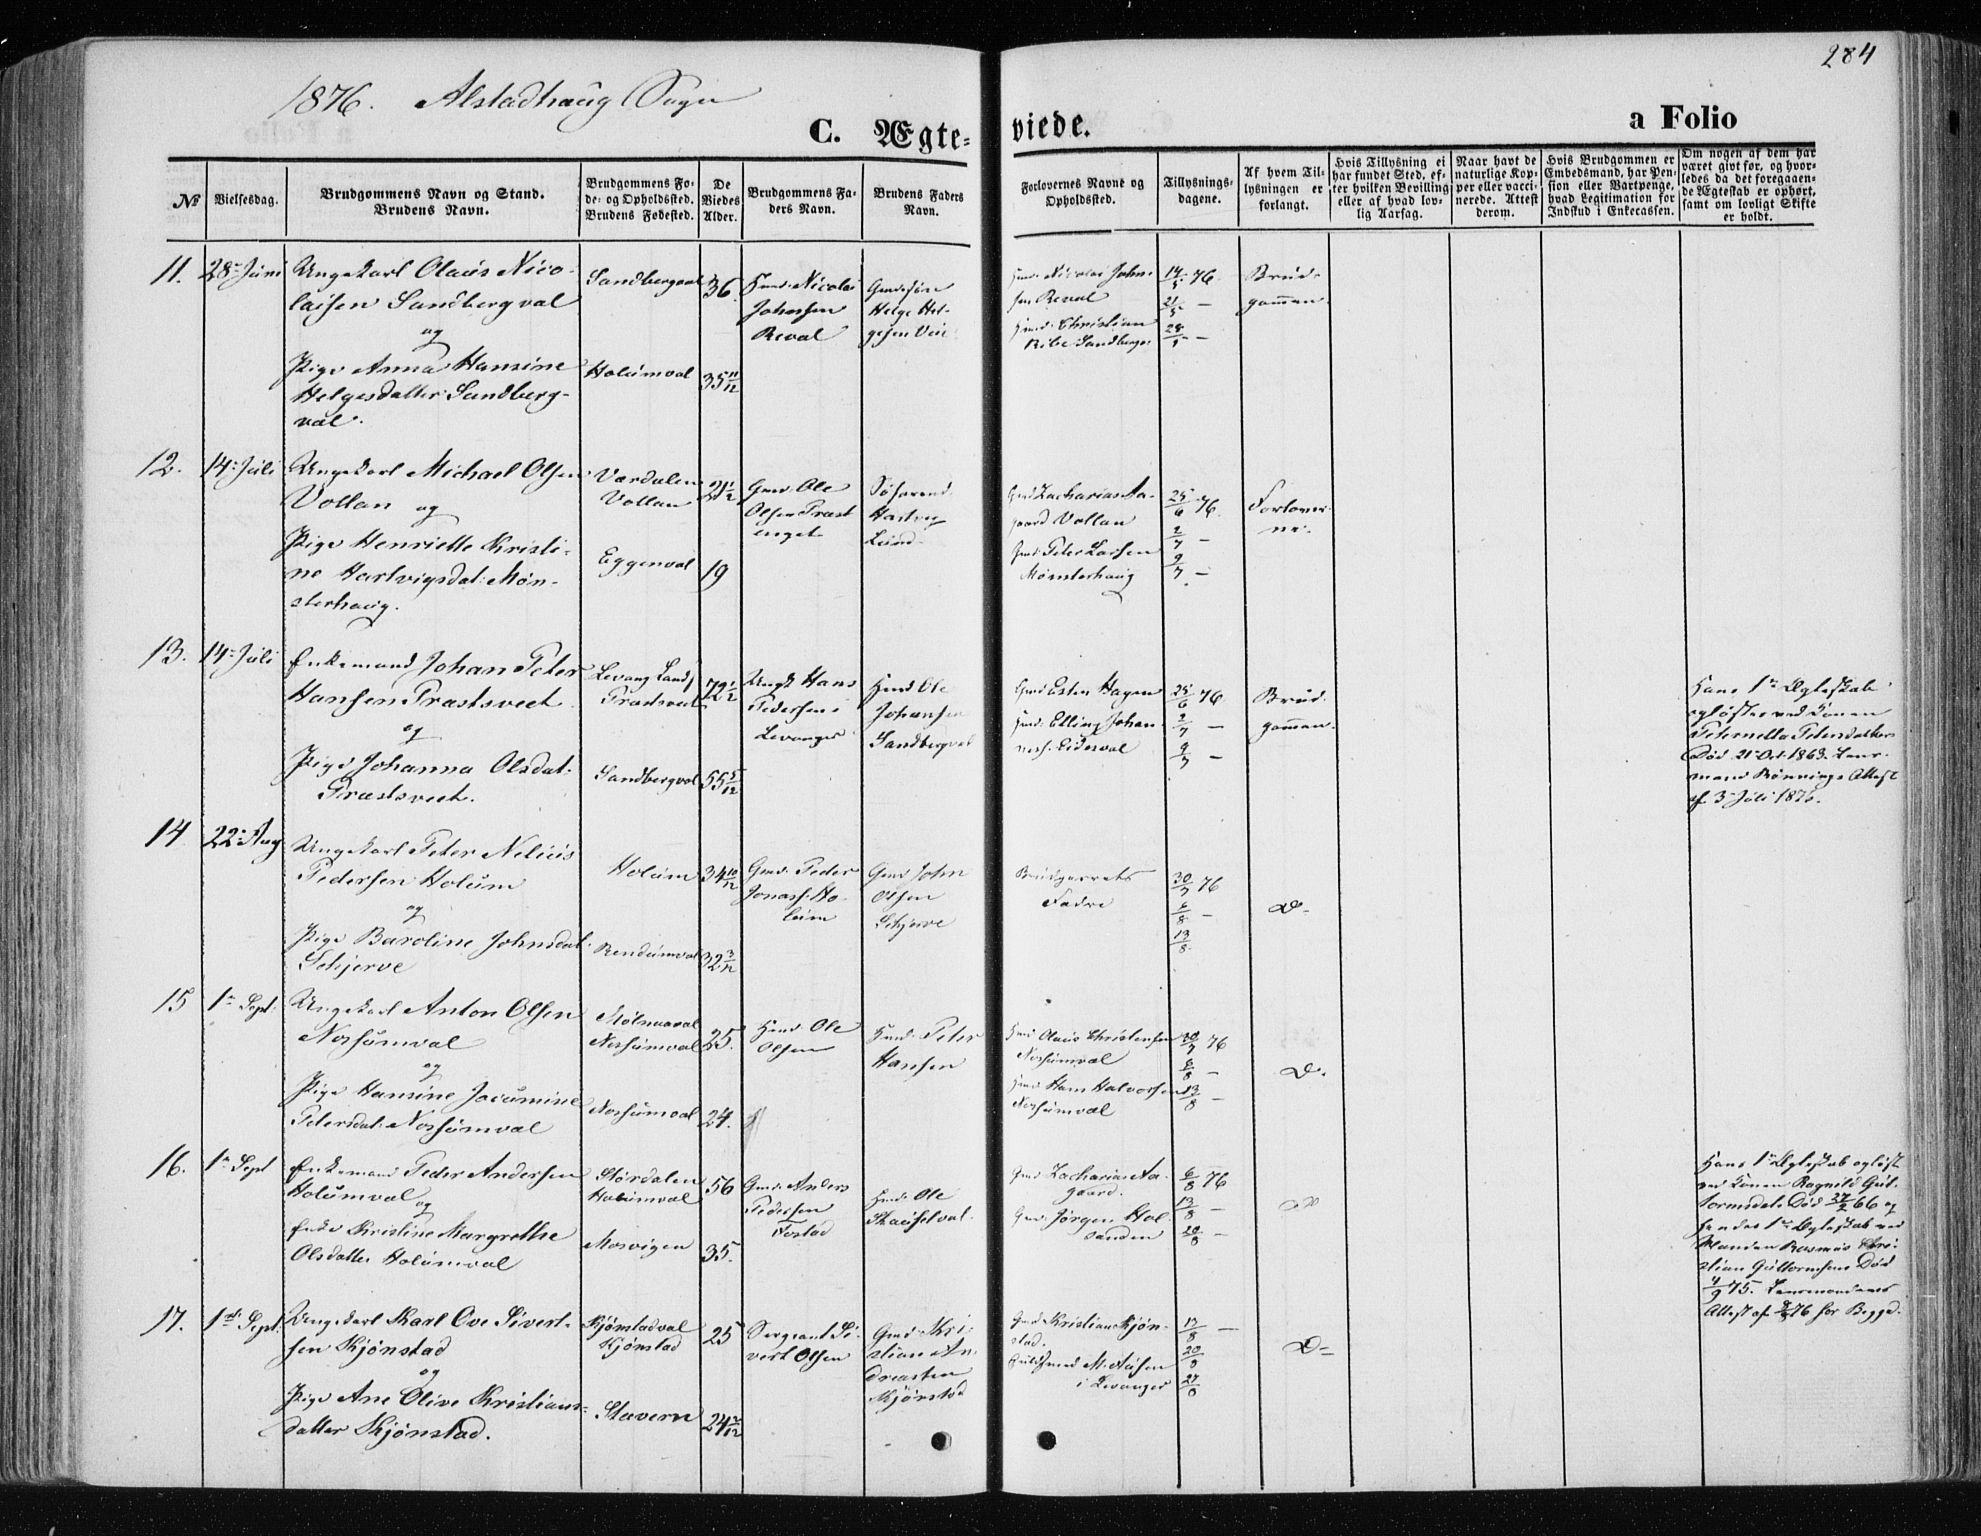 284
1876. Alstadhaug Sogn
C. Ægte-
viede.
a Folio
№
Vielsesdag.
Brudgommens Navn og Stand.
Brudens Navn.
Brudgommens Fø-
de- og Opholdssted.
Brudens Fødested.
De
Viedes
Alder.
Brudgommens Fa-
ders Navn.
Brudens Faders
Navn.
Forlovernes Navne og
Opholdssted.
Tillysnings-
dagene.
Af hvem Til-
lysningen er
forlangt.
Hvis Tillysning ei
har fundet Sted, ef-
ter hvilken Bevilling
eller af hvad lov-
lig Aarsag.
Naar havt de
naturlige Kop-
per eller vacci-
nerede. Attest
derom.
Hvis Brudgommen er
Embedsmand, har Pen-
sion eller Vartpenge,
hvad Legitimation for
Indskud i Enkecassen.
Om nogen af dem har
været givt før, og hvor-
ledes da det foregaaen-
de Ægteskab er ophørt,
samt om lovligt Skifte
er holdt.
11.
28de Juni
Ungekarl Olaus Nico-
laisen Sandbergval
og
Pige Anna Hansine
Helgesdatter Sandberg-
val.
Sandbergval
Holumval
36
35 11/12
Hmd. Nicolai
Johnsen
Reval
Helge Hel-
gesen
Hmd. Nicolai John-
sen Reval
Hmd. Christian
14/5 76.
21/5 —
28/5 —
Brud-
gommen.
12.
14de Juli
Ungekarl Michael Olsen
Vollan og
Pige Henriette Kristi-
ne Hartvigsdat. Møn-
sterhaug.
Værdalen
Vollan
Eggenval
19
Gmd. Ole
Olsen Præst
enget
Hartvig
Lund
Gmd. Zacharias Aa-
gaard Vollan
Gmd. Peter Larsen
Mønsterhaug
25/6 76.
2/7 —
9/7 —
Forlover-
ne.
13.
14de Juli
Enkemand Johan Peter
Hansen Præstsveet
og
Pige Johanna Olsdat.
Præstsveet.
Levang Lands.
Præstsveet
Sandbergval
72 1/2
55 5/12
Ungk. Hans
Pedersen i
Levanger
Hmd Ole
Johansen
Sandbergval
Gmd. Esten Hagen
Hmd. Elling Johan-
ness. Eidesval
25/6 76
2/7 —
9/7 —
Brud-
gommen.
Hans 1ste Ægteskab
opløstes ved Konen
Peternella Petersdatters
Død 21 Oct. 1863. Lens-
mand Rønnings Attest
af 3 Juli 1876.
14
22de Aug
Ungekarl Peter Nelius
Pedersen Holum
og
Pige Baroline Johnsdat.
Schjerve
Holum
Rendumval
34 10/12
32 3/12
Gmd. Peder
Jonass. Ho-
lum
Gmd John
Olsen
Schjerve
Brudparrets
Fædre
30/7 76
6/8 —
13/8
D-
15
1ste Sept.
Ungekarl Anton Olsen
Nossumval
og
Pige Hansine Jacumine
Petersdat. Nossumval
Mølnaaval
Nossumval
Nossumval
25.
24.
Hmd. Ole
Olsen
Hmd. Peter
Hansen
Hmd Olaus Christensen
Nossumval
Hmd Hans Halvorsen
Nossumval
30/7 76
6/8 —
13/8 —
D.
16.
1ste Sept
Enkemand Peder Andersen
Holumval
og
Enke Kristine Margrethe
Olsdatter Holumval
Størdalen
Holumval
Mosvigen
56
35.
Gmd. Anders
Pedersen
Fostad
Hmd. Ole
Gmd Zacharias Aa-
gaard.
Gmd. Jørgen Hol-
sanden
6/8 76
13/8 —
20/8 —
Hans 1ste Ægteskab opløst
ved Konen Ragnild Gut-
tormsdats Død 27/2 66 og
hendes 1ste Ægteskab ved
Manden Rasmus Chri-
stian Guttormsens Død
4/9 75. Lensmandens
Attest af 76 for Begge.
17.
1ste Sept.
Ungekarl Karl Ove Sivert-
sen Skjønstad
og
Pige Ane Olive Kristians-
datter Skjønstad.
Skjønstadval
Skjønstad
Stavern
25
24
Sergeant Si-
vert Olsen
Gmd Kri-
stian An-
dreassen
Skjønstad
Gmd Kristian Skjøn-
stad.
Guldsmed M. Aasen
i Levanger
13/8 —
20/8
27/8
D-